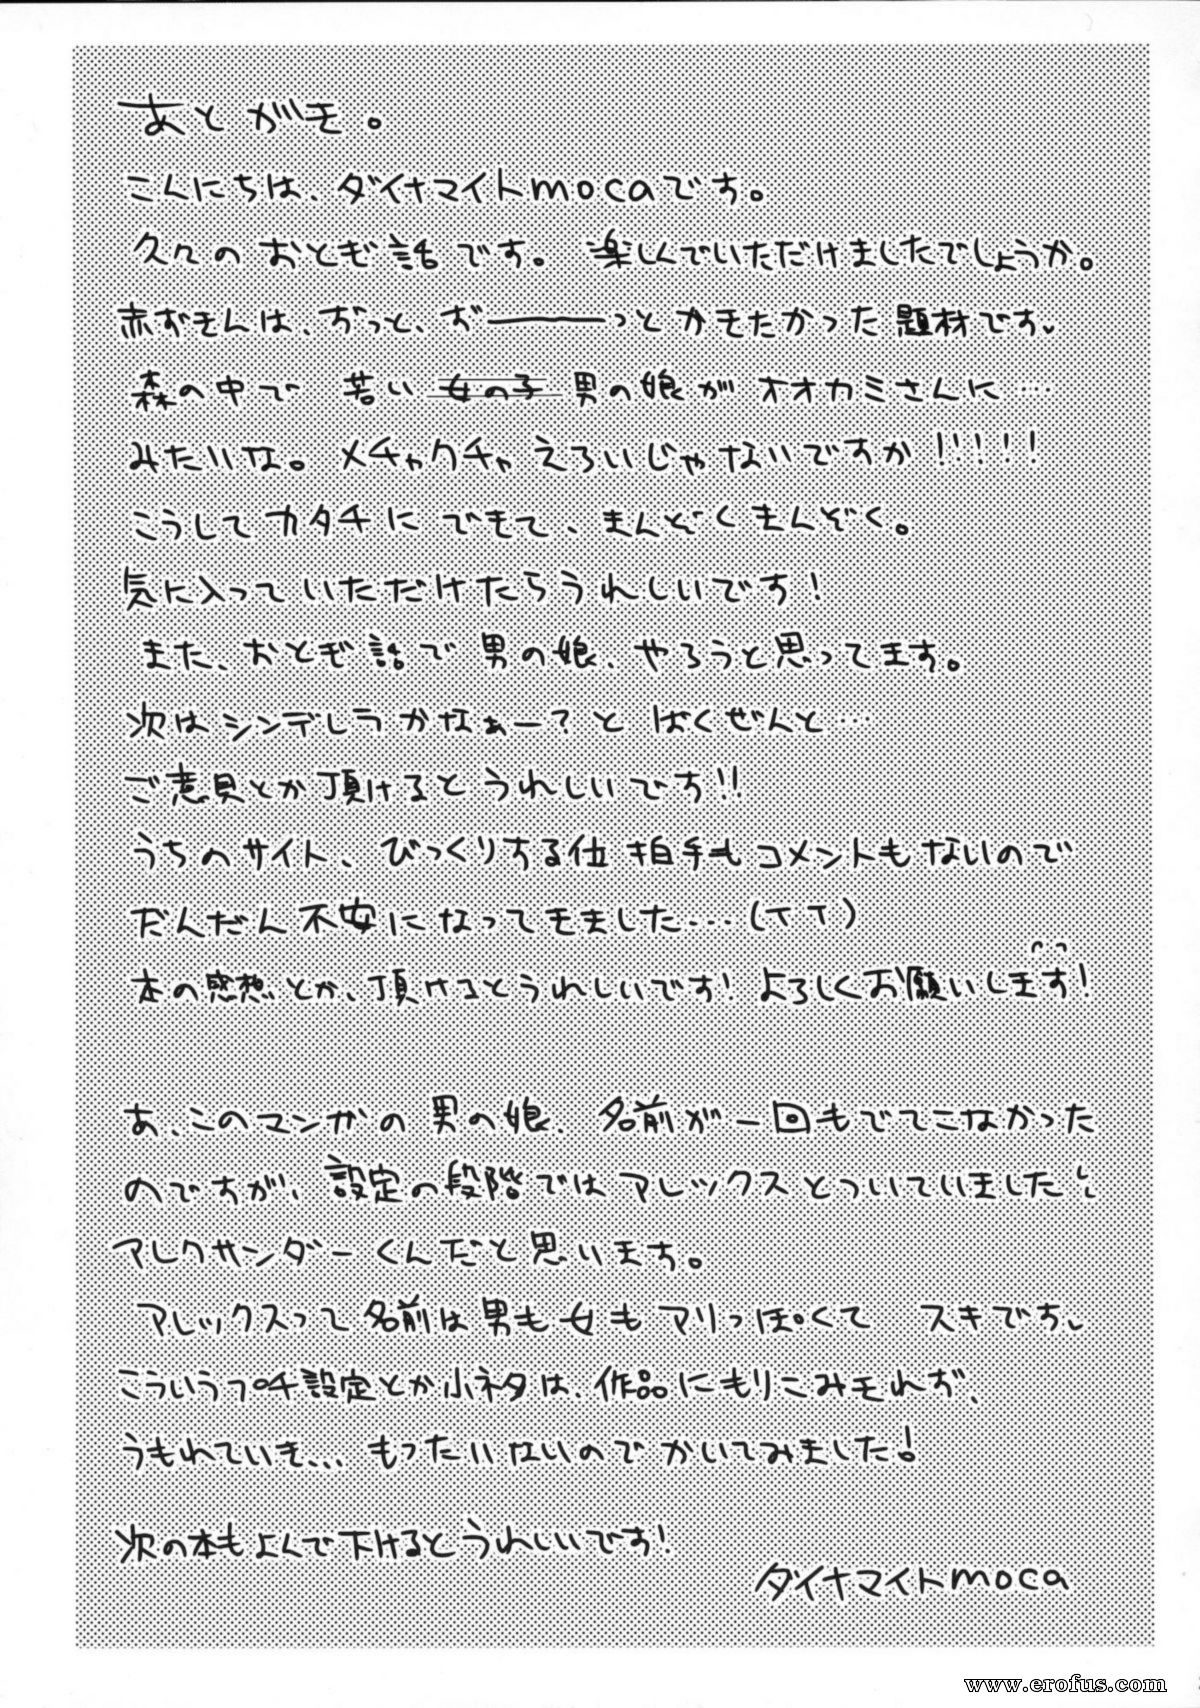 あとがき。
こんにちは、ダイナマイトmocaです。
久々のおとぎ話です。楽しんでいただけましたでしょうか。
赤ずきんは、ずっと、ず───っとかきたかった題材です。
森の中で 若い 女の子 男の娘が オオカミさんに……
みたいな。メチャクチャえろいじゃないですか!!!!!
こうしてカタチにできて、まんぞくまんぞく。
気に入っていただけたらうれしいです!
また、おとぎ話で男の娘、やろうと思ってます。
次はシンデレラかなぁー?と ばくぜんと…
ご意見とか頂けるとうれしいです!!
うちのサイト、びっくりする位 拍手もコメントもないので
だんだん不安になってきました…(TT)
本の感想とか、頂けるとうれしいです! よろしくお願いします!
あ、このマンガの男の娘、名前が一回もでてこなかった
のですが、設定の段階ではアレックスとついていました
アレクサンダーくんだと思います。
アレックスって名前は男も女もアリっぽくて スキです。
こういうプチ設定とか小ネタは、作品にもりこみきれず、
うもれていき… もったいないのでかいてみました!
次の本もよんで下けるとうれしいです!
ダイナマイトmoca
www.erofus.com